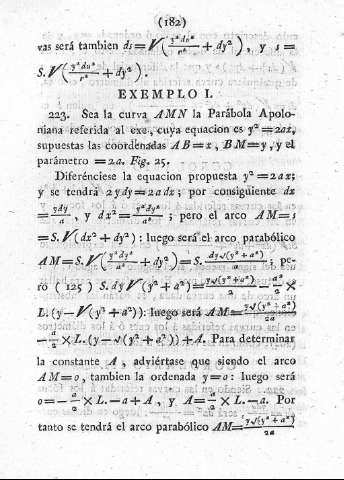 (182)
vas será tambien ds=√(y²du²/r² + dy²), y s=
S.√(y²du²/r² + dy²).
EXEMPLO I.
223. Sea la curva AMN la Parábola Apolo-
niana referida al exe, cuya equacion es y²=2ax,
supuestas las coordenadas AB=x, BM=y, y el
parámetro =2a. Fig. 25.
Diferénciese la equacion propuesta y²=2ax;
y se tendrá 2ydy=2adx; por consiguiente dx
=ydy/a, y dx²=y²dy²/a²; pero el arco AM=s
=S.√(dx²+dy²): luego será el arco parabólico
AM=S.√(y²dy²/a² + dy²)=S. dy√(y²+a²)/a; pe-
ro (125) S.dy√(y²+a²)=y√(y²+a²)/2 - a²/2 ×
L.(y-√(y²+a²)): luego será AM=y√(y²+a²)/2a
-a/2 × L.(y-√(y²+a²))+A. Para determinar
la constante A, adviértase que siendo el arco
AM=0, tambien la ordenada y=0: luego será
0=-a/2 × L.-a+A, y A=a/2 × L.-a. Por
tanto se tendrá el arco parabólico AM=y√(y²+a²)/2a